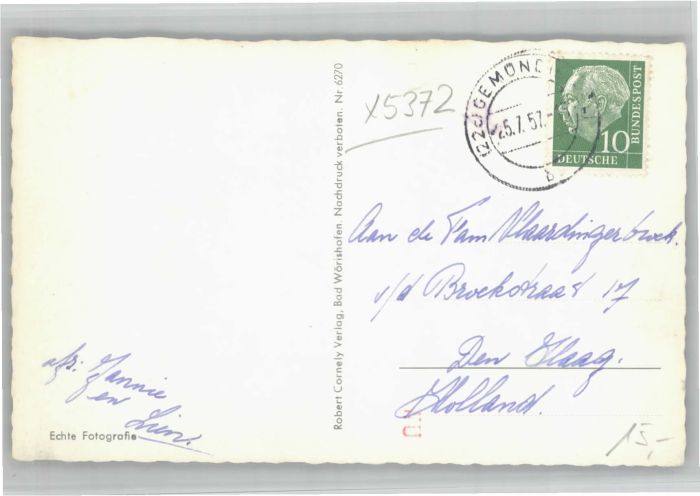 X5372
(22c) GEMÜND
25.7.57
10
DEUTSCHE
BUNDESPOST
Aan de Fam Vlaardingerbroek.
v/d Broekstraat 17
Den Haag.
Holland.
afz: Jannie
en
Lien.
Echte Fotografie
Robert Cornely Verlag, Bad Wörishofen. Nachdruck verboten. Nr 6270
15,-